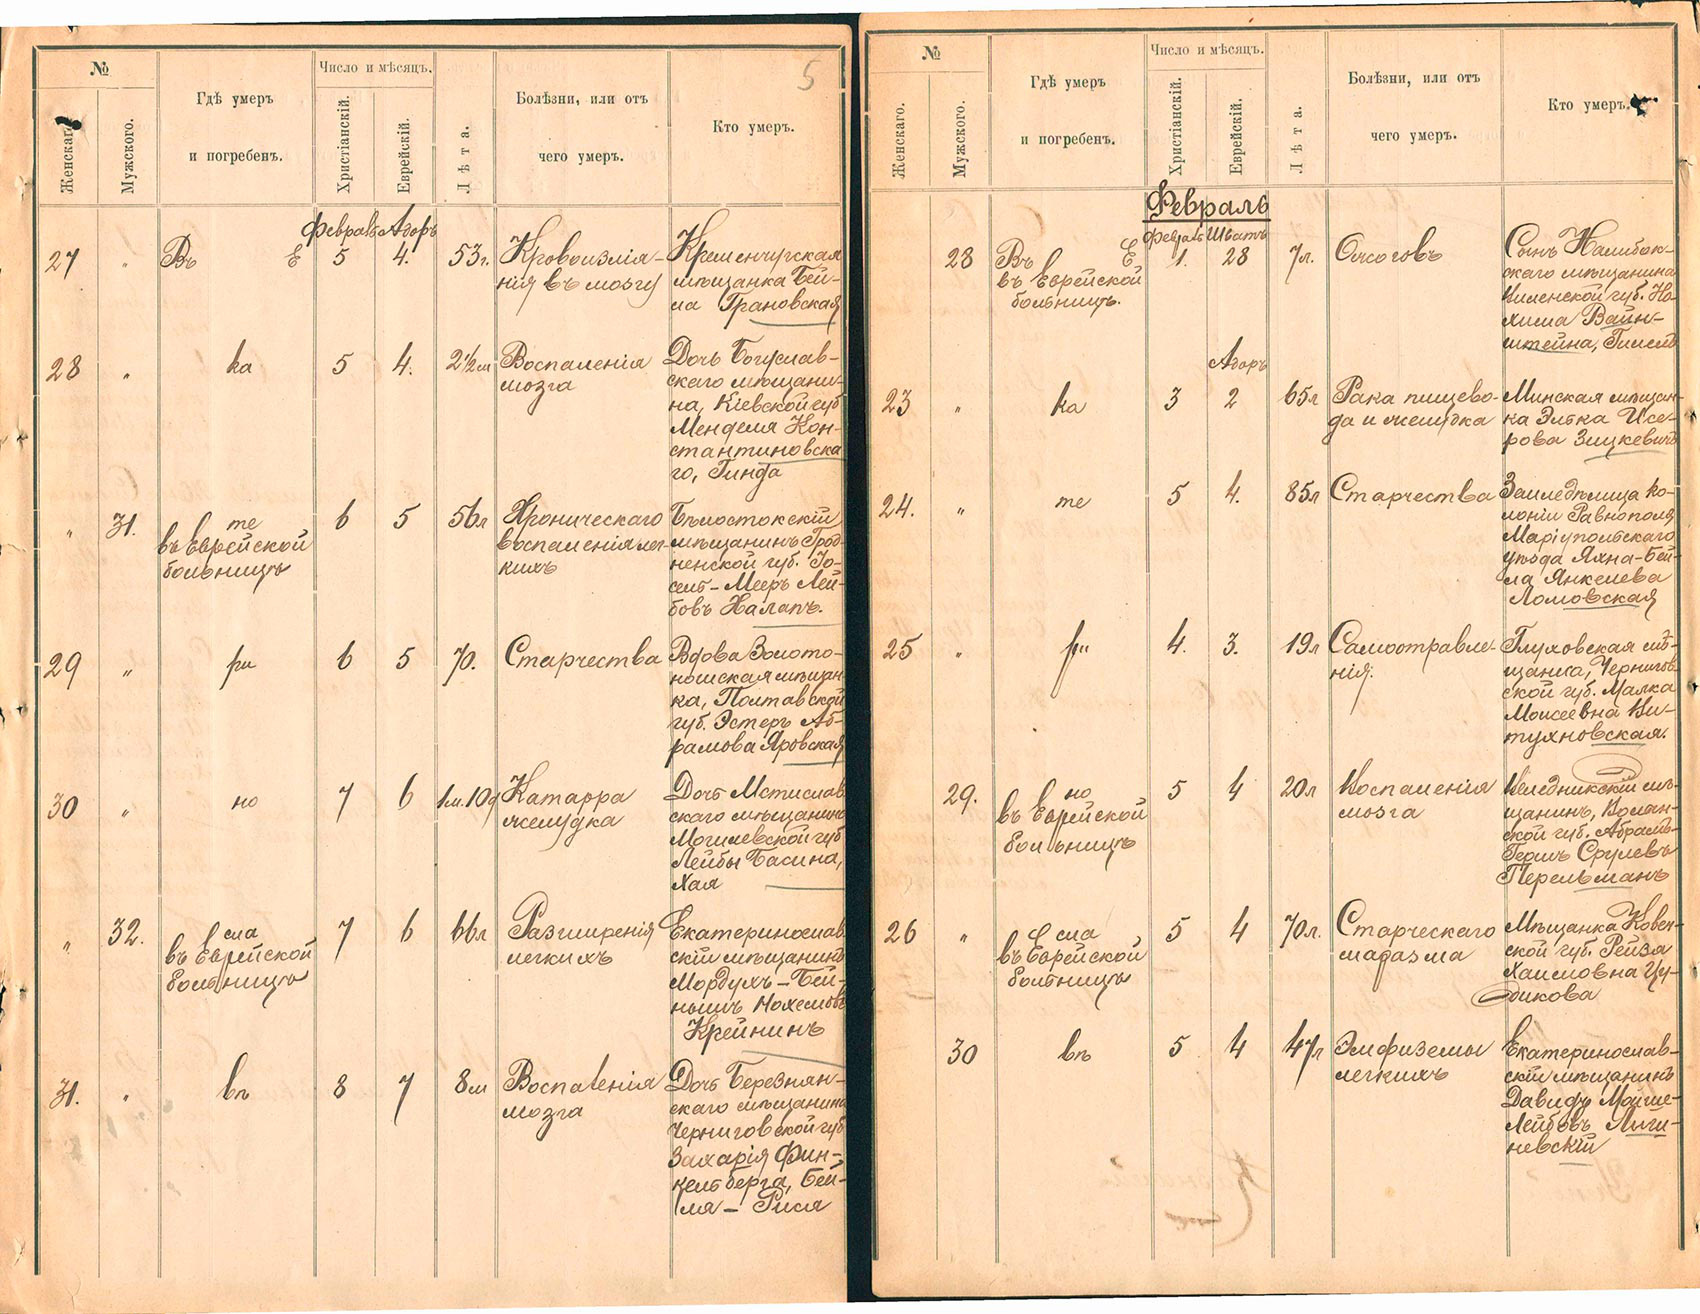 5
№
Женскаго.
Мужского.
Гдѣ умеръ
и погребенъ.
Число и мѣсяцъ.
Христіанскій.
Еврейскій.
Лѣта.
Болѣзни, или отъ
чего умеръ.
Кто умеръ.
Февраль Адоръ
27 „ Въ Е 5 4. 53г.
Кровоизлія-
нія въ мозгу
Кременчугская
мѣщанка Бей-
ла Грановская
28 „ ка 5 4. 2½м
Воспаленія
мозга
Дочь Богуслав-
скаго мѣщани-
на, Кіевской губ
Менделя Кон-
стантиновска
го, Гинда
„ 31. те 6 5 56л
въ Еврейской
больницѣ
Хроническаго
воспаленія лег-
кихъ
Бѣлостокскій
мѣщанинъ Грод-
ненской губ. Іо-
сель-Мееръ Лей-
бовъ Халапъ.
29 „ ри 6 5 70.
Старчества
Вдова Золото-
ношская мѣщан
ка, Полтавской
губ. Эстеръ Аб-
рамова Яровская
30 „ но 7 6 1м.10д
Катарра
желудка
Дочь Мстислав
скаго мѣщанина
Могилевской губ
Лейбы Басина,
Хая
„ 32. сла 7 6 66л
въ Еврейской
больницѣ
Разширенія
легкихъ
Екатеринослав
скій мѣщанинъ
Мордухъ-Бей-
нышъ Нохемовъ
Крейнинъ
31. „ въ 8 7 8м
Воспаленія
мозга
Дочь Березнян-
скаго мѣщанина
Черниговской губ
Захарія Фин-
кельберга, Бей-
ля-Рися
№
Женскаго.
Мужского.
Гдѣ умеръ
и погребенъ.
Число и мѣсяцъ.
Христіанскій.
Еврейскій.
Лѣта.
Болѣзни, или отъ
чего умеръ.
Кто умеръ.
Февраль
Февраль Шватъ
28 Въ Е 1. 28 7л.
въ Еврейской
больницѣ.
Ожоговъ
Сынъ Налибок-
скаго мѣщанина
Виленской губ. Но-
хима Вайн-
штейна, Гилель
Адоръ
23 „ ка 3 2 65л
Рака пищево-
да и желудка
Минская мѣщан-
ка Элька Исе-
рова Зицкевичъ
24. „ те 5 4. 85л
Старчества
Земледѣлица ко-
лоніи Равнополя
Маріупольскаго
уѣзда Яхна-Бей-
ла Янкелева
Ломовская
25 „ ри 4. 3. 19л
Самоотравле-
нія.
Глуховская мѣ-
щанка, Чернигов-
ской губ. Малка
Моисеевна Ви-
тухновская.
29. но 5 4 20л
въ Еврейской
больницѣ
Воспаленія
мозга
щанинъ, Волын-
ской губ. Абрамъ-
Гершъ Срулевъ
Перельманъ
26 „ сла 5 4 70л.
въ Еврейской
больницѣ
Старческаго
маразма
Мѣщанка Ковен-
ской губ. Рейза
Хаимовна Цу-
дикова
30 въ 5 4 47л
Эмфиземы
легкихъ
Екатеринослав-
скій мѣщанинъ
Давидъ Мойше-
Лейбовъ Лиги-
невскій